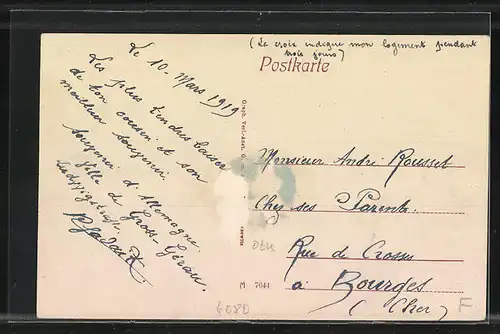 (La croix indique mon logement pendant
trois jours)
Postkarte
Le 10 Mars 1919
Les plus tendres baisers
de ton cousin et son
meilleur souvenir.
Souvenir d'Allemagne
Ville de Gross Gérau.
Monsieur André Rousset
Chez ses Parents
Rue de Crosses
à Bourges
(Cher)
M 7044
6080
F